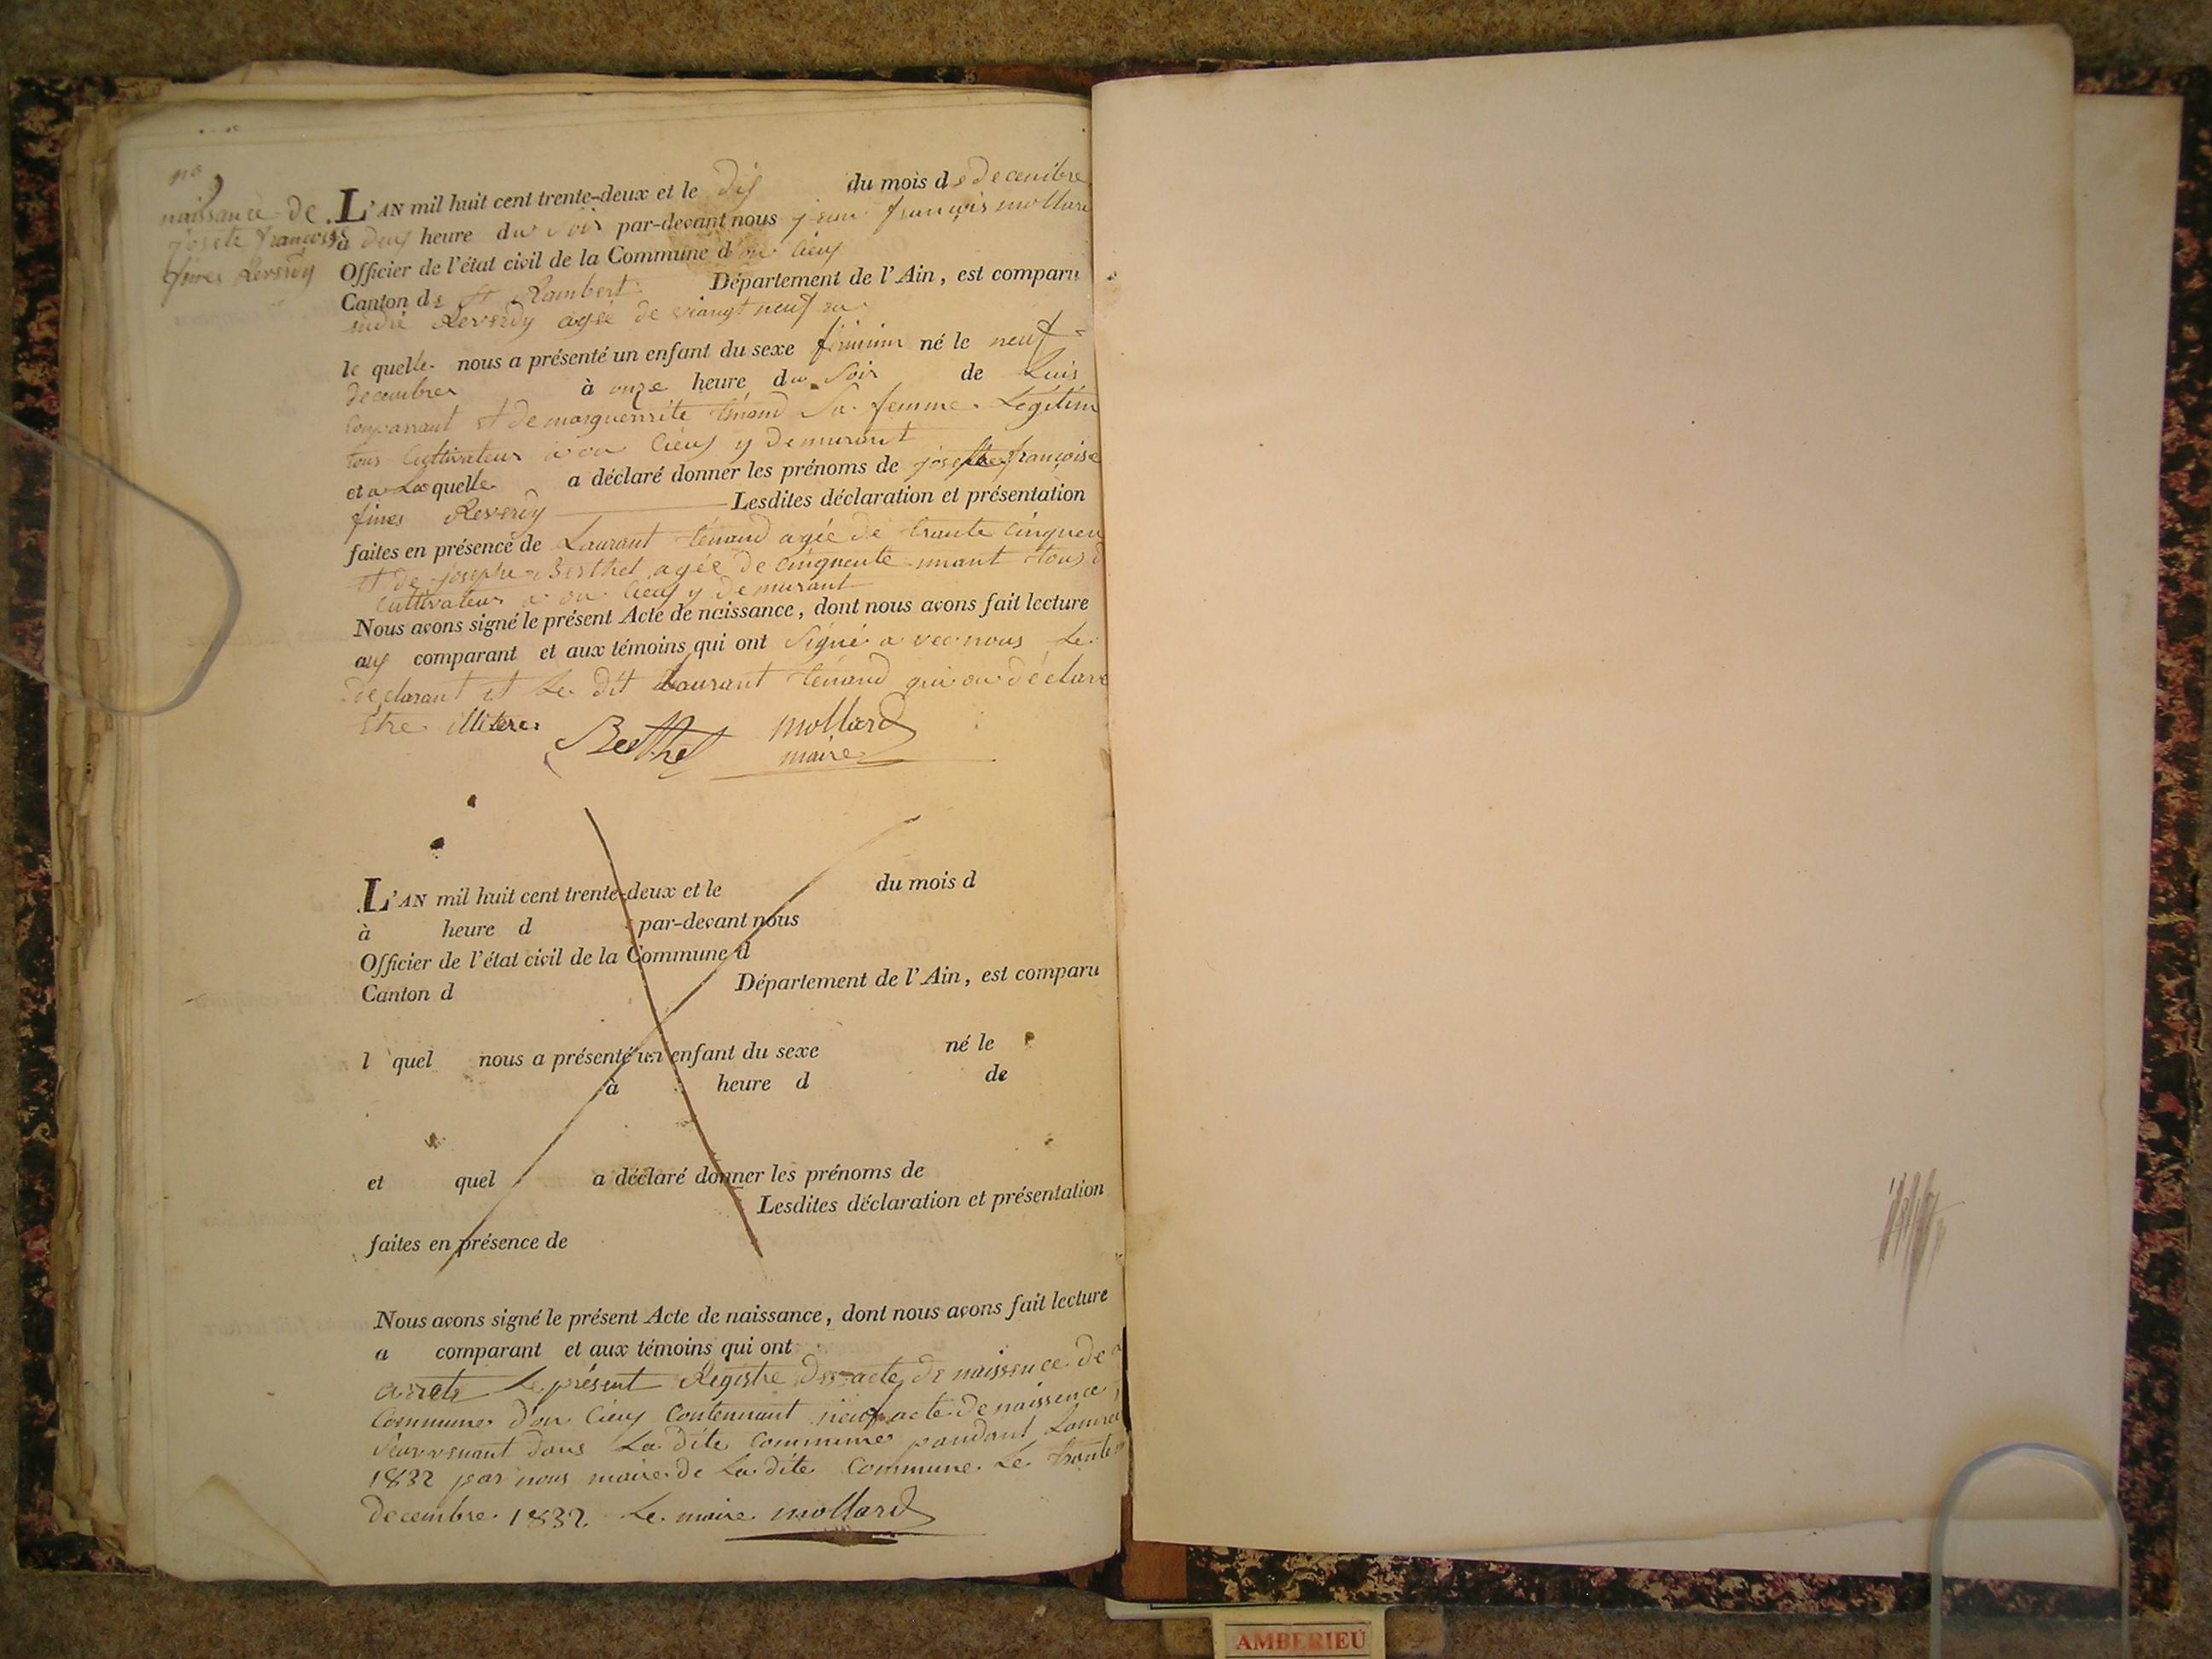 no 9
naissance de
josete françoise
fines Reverdy
L'AN mil huit cent trente-deux et le dix du mois de decembre
à deux heure du soir par-devant nous jean françois mollard
Officier de l'état civil de la Commune d'on cieux
Canton de St Rambert Département de l'Ain, est comparu
Reverdy agée de viangt neuf
le quelle nous a présenté un enfant du sexe féminin né le neuf
decembre à onze heure du soir de Luis
comparrant et de marguerrite ténand sa femme Légitim
tous cultivateur a on cieux y demurant
et a Laquelle a déclaré donner les prénoms de josette françoise
fines Reverdy Lesdites déclaration et présentation
faites en présence de Laurant ténand agée de trante cinq
et de joseph Berthet agée de cinquente tous
cultivateur a on cieux y demurant
Nous avons signé le présent Acte de naissance, dont nous avons fait lecture
aux comparant et aux témoins qui ont signé avec nous Le
declarant et Le dit Laurant ténand qui on déclaré
Etre illitere
Berthet mollard
maire
L'AN mil huit cent trente-deux et le du mois d
à heure d par-devant nous
Officier de l'état civil de la Commune d
Canton d Département de l'Ain, est comparu
l quel nous a présenté un enfant du sexe né le
à heure d de
et quel a déclaré donner les prénoms de
Lesdites déclaration et présentation
faites en présence de
Nous avons signé le présent Acte de naissance, dont nous avons fait lecture
a comparant et aux témoins qui ont
arrete Le présent Régistre des acte de naissence de
Commune d'on cieux contennant neuf acte de naissence
dans La dite commune pandant Lannee
1832 par nous maire de La dite Commune Le trante
decembre 1832 Le maire mollard
AMBERIEU